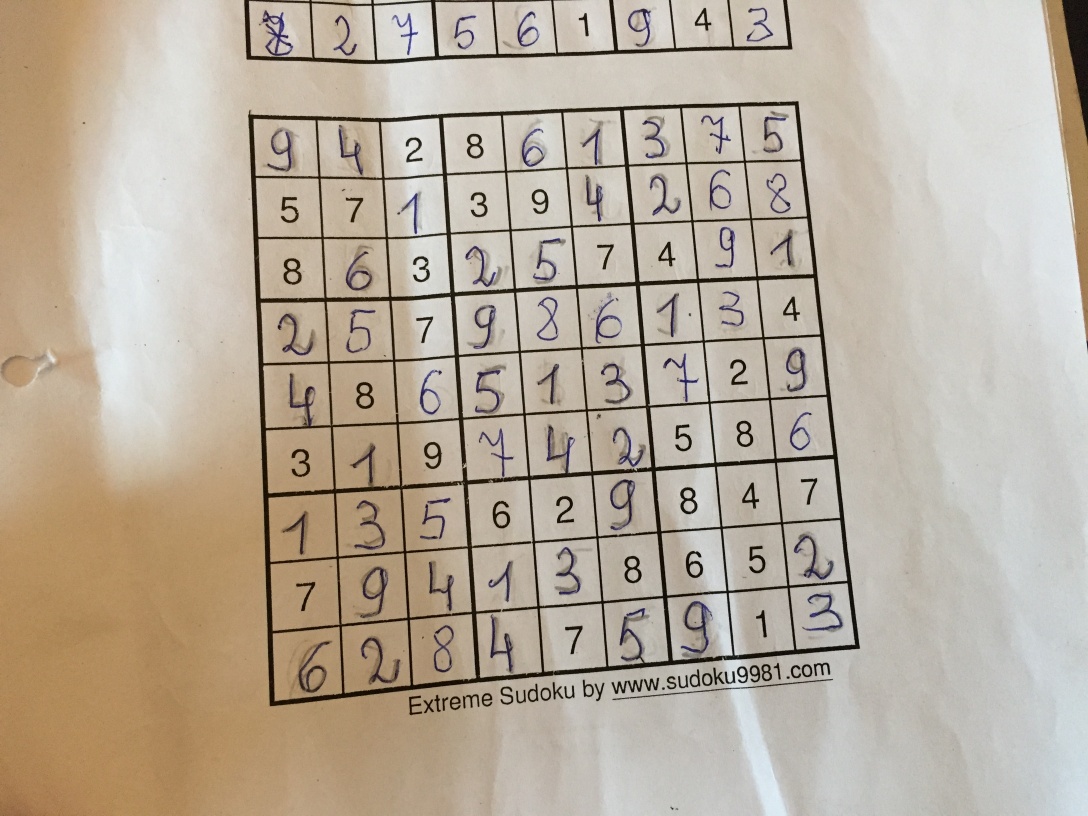 2 7 5 6 1 9 4 3
9 4 2 8 6 1 3 7 5
5 7 1 3 9 4 2 6 8
8 6 3 2 5 7 4 9 1
2 5 7 9 8 6 1 3 4
4 8 6 5 1 3 7 2 9
3 1 9 7 4 2 5 8 6
1 3 5 6 2 9 8 4 7
7 9 4 1 3 8 6 5 2
6 2 8 4 7 5 9 1 3
Extreme Sudoku by www.sudoku9981.com